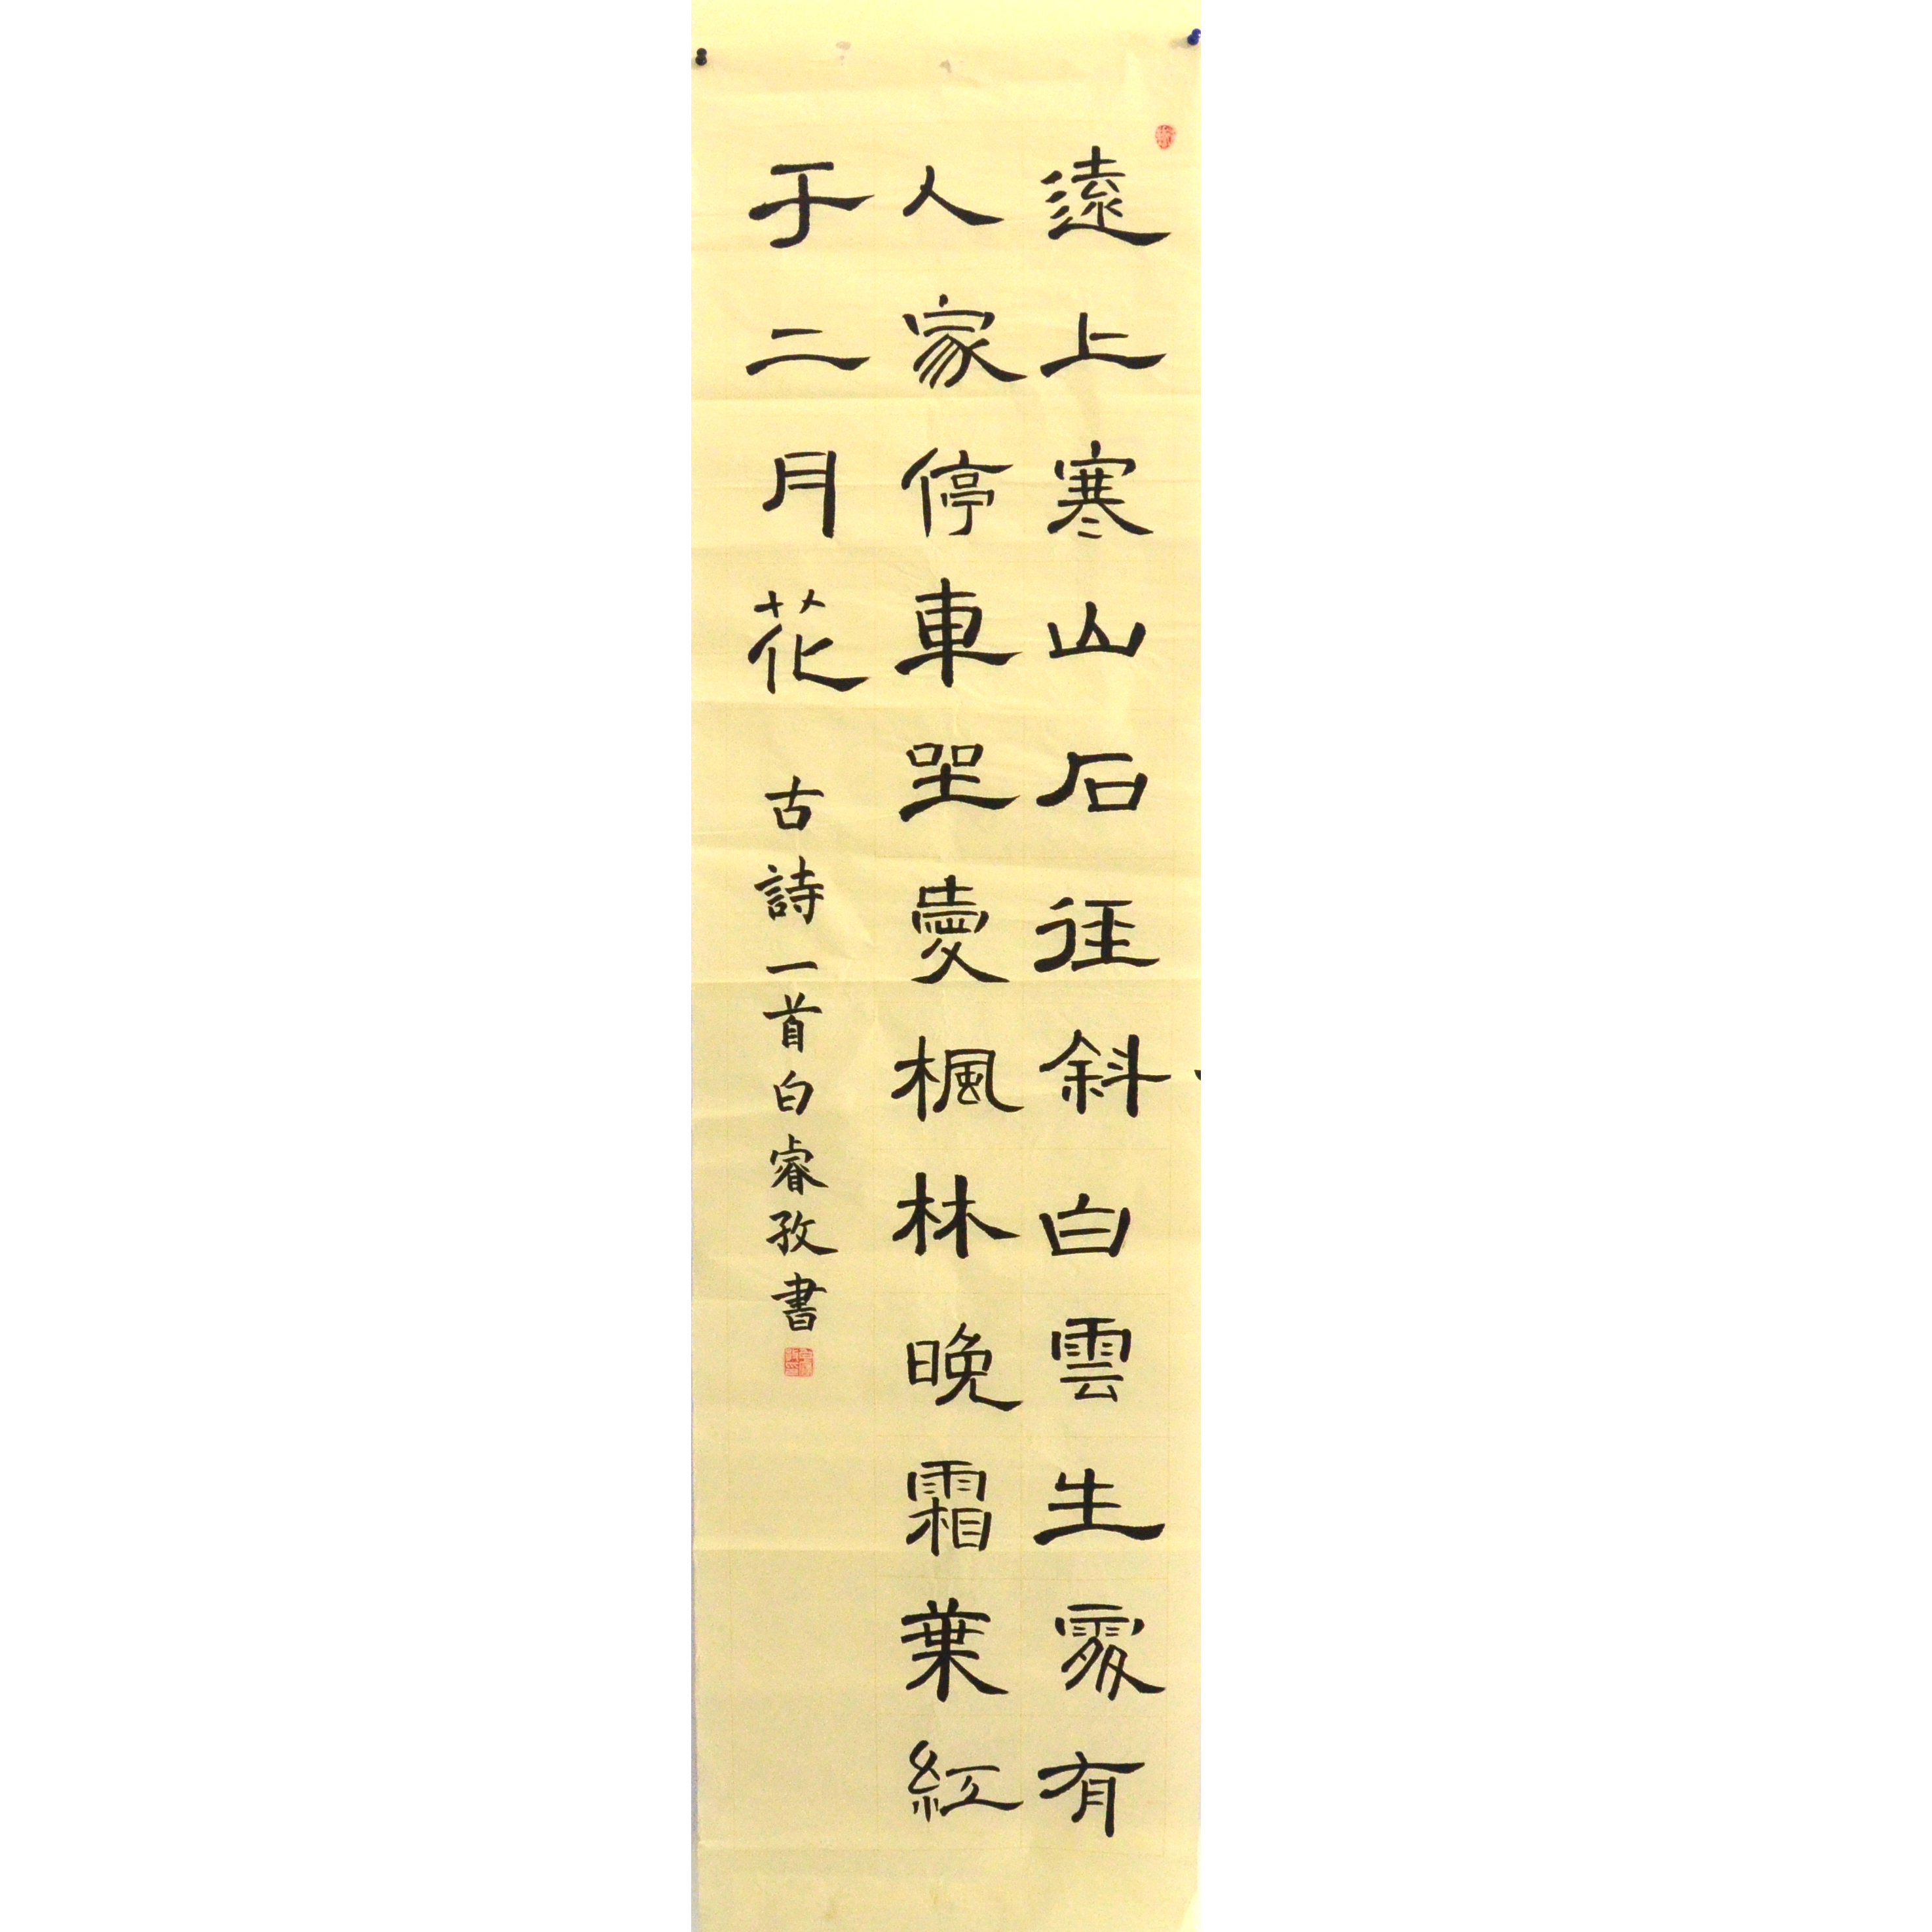 遠上寒山石徑斜白雲生處有
人家停車坐愛楓林晚霜葉紅
于二月花
古詩一首白睿孜書